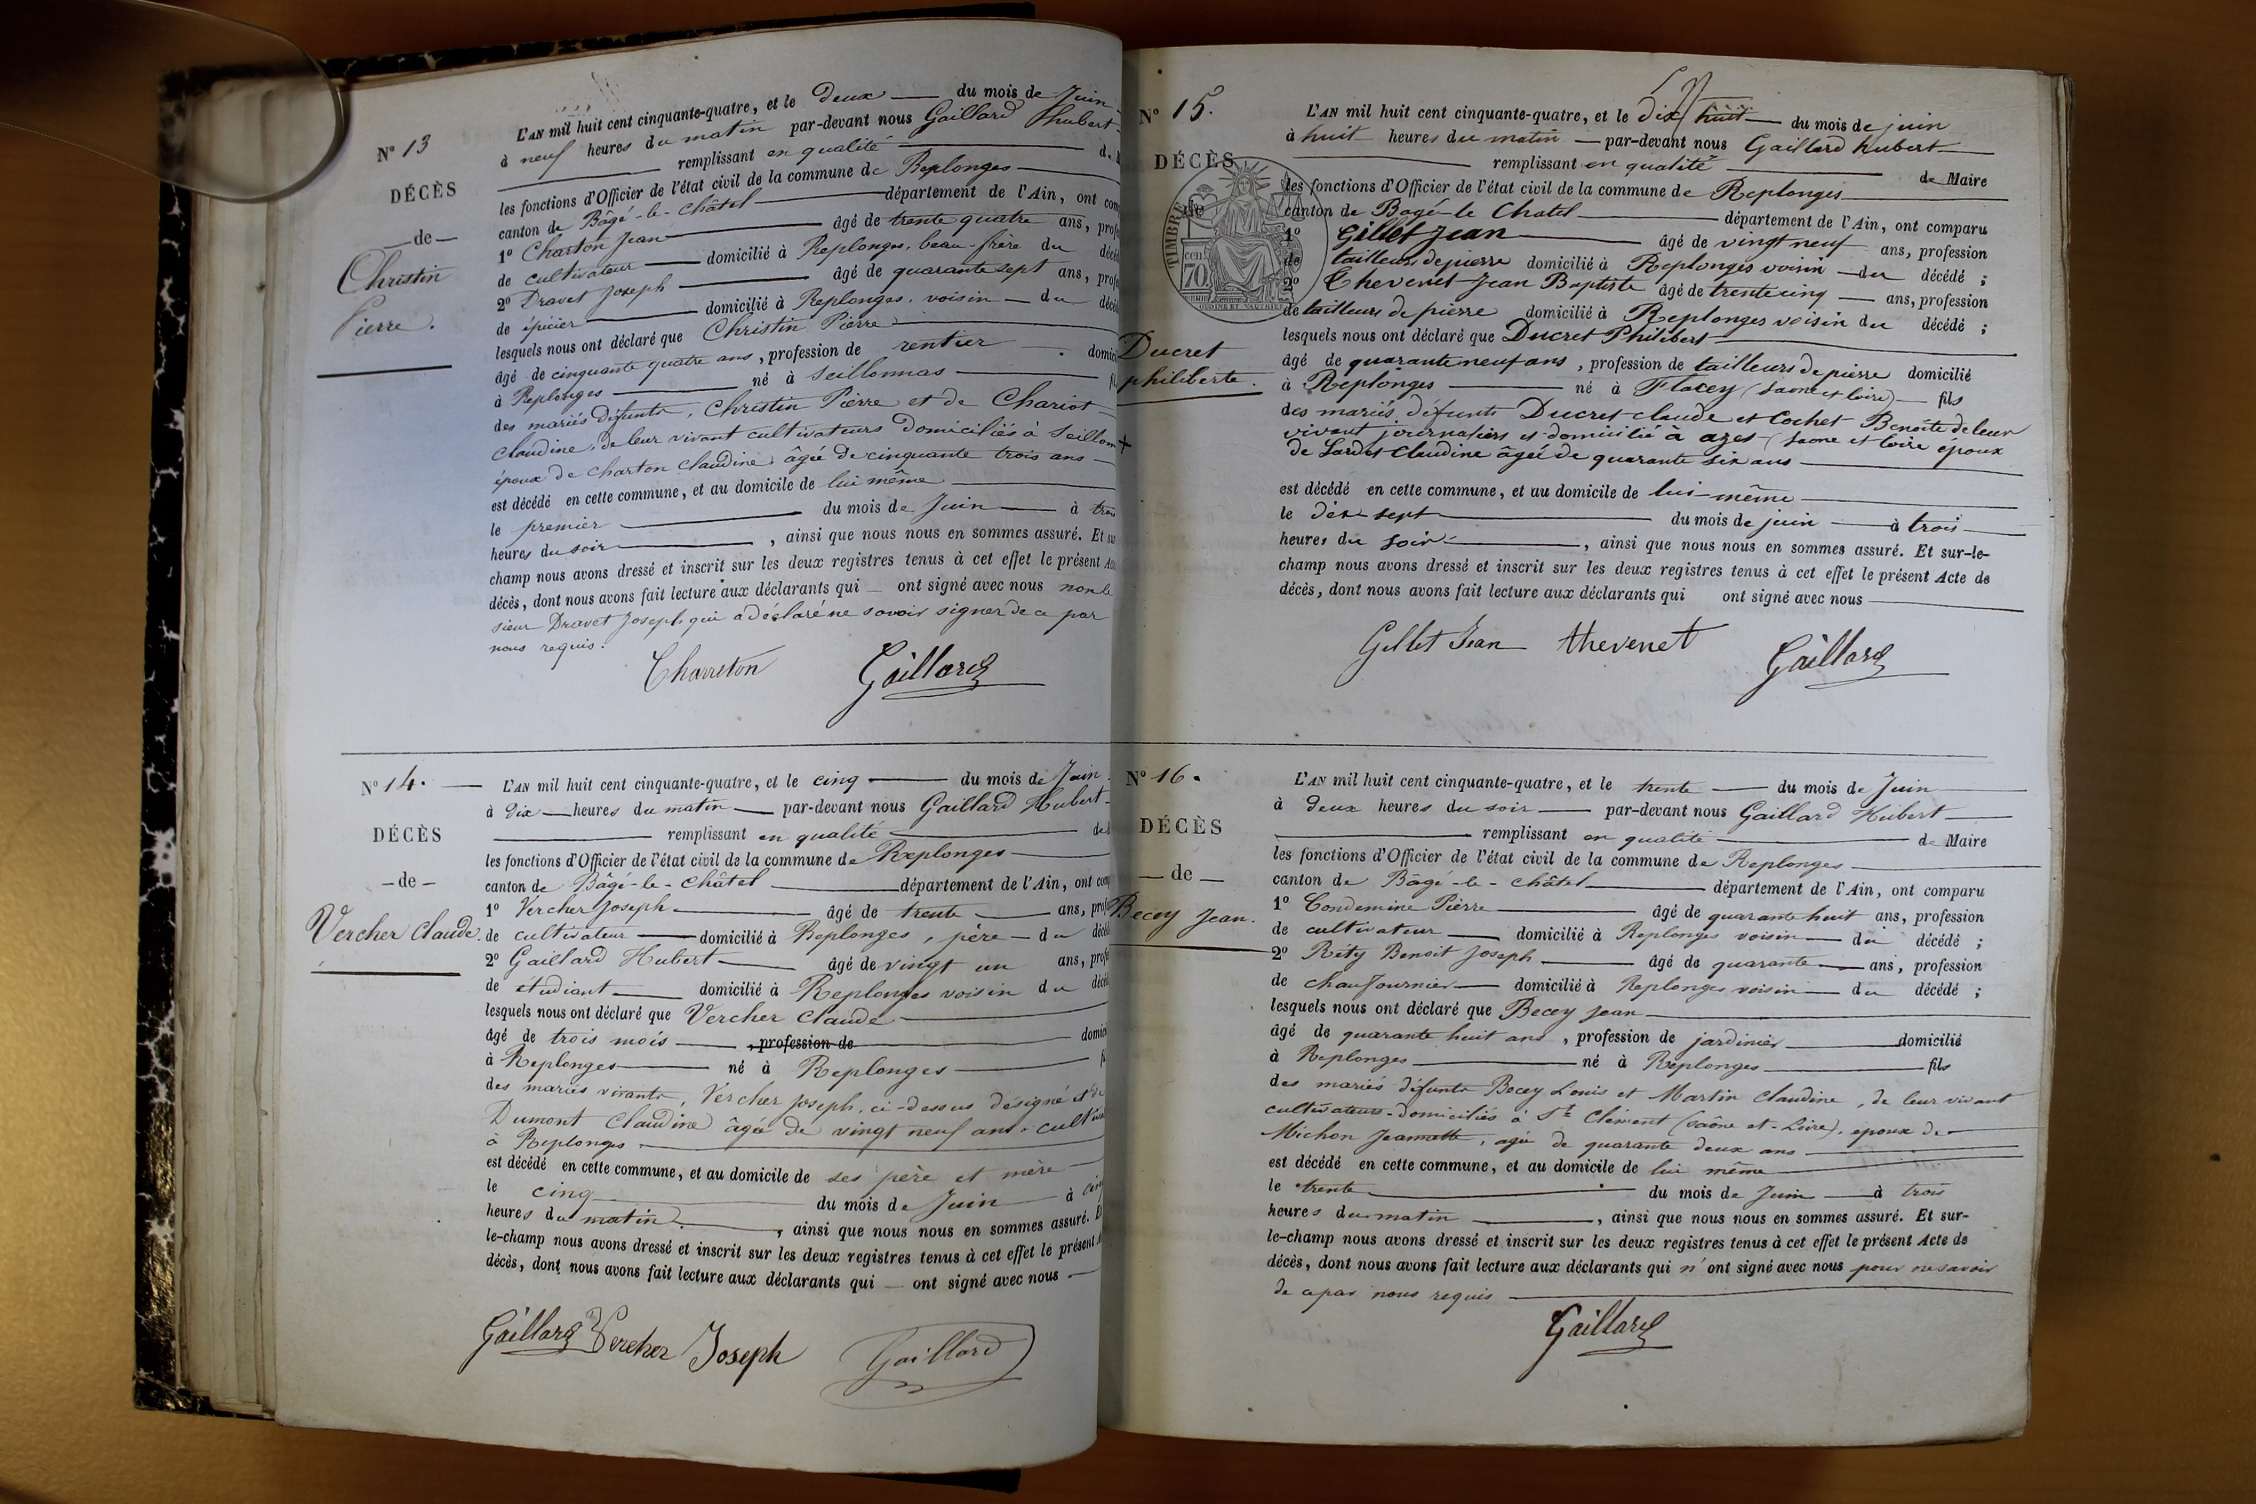 N° 13
DÉCÈS
—de—
Christin
Pierre.
L'AN mil huit cent cinquante-quatre, et le deux — du mois de Juin
à neuf heures du matin par-devant nous Gaillard hubert
remplissant en qualité — de
les fonctions d'Officier de l'état civil de la commune de Replonges
canton de Bâgé-le-Châtel — département de l'Ain, ont com
1° Charton Jean — âgé de trente quatre ans, profe
de cultivateur — domicilié à Replonges, beau-frère du décé
2° Dravet Joseph — âgé de quarante sept ans, profe
de épicier — domicilié à Replonges, voisin — du décé
lesquels nous ont déclaré que Christin Pierre
âgé de cinquante quatre ans, profession de rentier — domici
à Replonges — né à Seillonnas — fi
des mariés défunts, Christin Pierre et de Chariot
Claudine, de leur vivant cultivateurs domiciliés à Seillonn
époux de Charton Claudine âgée de cinquante trois ans
est décédé en cette commune, et au domicile de lui même
le premier — du mois de Juin — à trois
heures du soir —, ainsi que nous nous en sommes assuré. Et su
champ nous avons dressé et inscrit sur les deux registres tenus à cet effet le présent Acte
décès, dont nous avons fait lecture aux déclarants qui — ont signé avec nous non le
sieur Dravet Joseph qui a déclaré ne savoir signer de ce par
nous requis.
Charreton Gaillard
N° 14. —
DÉCÈS
—de—
Vercher Claude.
L'AN mil huit cent cinquante-quatre, et le cinq — du mois de Juin
à dix — heures du matin — par-devant nous Gaillard Hubert
remplissant en qualité — de
les fonctions d'Officier de l'état civil de la commune de Replonges
canton de Bâgé-le-Châtel — département de l'Ain, ont comp
1° Vercher Joseph — âgé de trente — ans, profe
de cultivateur — domicilié à Replonges, père — du décéd
2° Gaillard Hubert — âgé de vingt un ans, profe
de étudiant — domicilié à Replonges voisin du décéd
lesquels nous ont déclaré que Vercher Claude
âgé de trois mois — , profession de — domici
à Replonges — né à Replonges — fi
des mariés vivants, Vercher Joseph, ci-dessus désigné et de
Dumont Claudine âgée de vingt neuf ans, cultiva
à Replonges
est décédé en cette commune, et au domicile de ses père et mère
le cinq — du mois de Juin — à cinq
heures du matin —, ainsi que nous nous en sommes assuré. Et
le-champ nous avons dressé et inscrit sur les deux registres tenus à cet effet le présent A
décès, dont nous avons fait lecture aux déclarants qui — ont signé avec nous —
Gaillard Vercher Joseph Gaillard
N° 15.
DÉCÈS
de
TIMBRE
70 cen
Ducret
philiberte.
L'AN mil huit cent cinquante-quatre, et le dix huit — du mois de juin
à huit heures du matin — par-devant nous Gaillard hubert
remplissant en qualité — de Maire
les fonctions d'Officier de l'état civil de la commune de Replonges
canton de Bagé-le Chatel — département de l'Ain, ont comparu
1° Gillet Jean — âgé de vingt neuf ans, profession
de tailleurs de pierre domicilié à Replonges voisin — du décédé ;
2° Thevenet Jean Baptiste âgé de trente cinq — ans, profession
de tailleurs de pierre domicilié à Replonges voisin du décédé ;
lesquels nous ont déclaré que Ducret Philibert
âgé de quarante neuf ans, profession de tailleurs de pierre domicilié
à Replonges — né à Flacey (Saone et loire) — fils
des mariés défunts Ducret claude et Cochet Benoîte de leur
vivant journaliers et domicilié à azes (Saone et loire époux
de Lardet Claudine âgée de quarante six ans
est décédé en cette commune, et au domicile de lui-même
le dix sept — du mois de juin — à trois
heures du soir —, ainsi que nous nous en sommes assuré. Et sur-le-
champ nous avons dressé et inscrit sur les deux registres tenus à cet effet le présent Acte de
décès, dont nous avons fait lecture aux déclarants qui ont signé avec nous —
Gillet Jean thevenet Gaillard
N° 16.
DÉCÈS
— de —
Becey Jean.
L'AN mil huit cent cinquante-quatre, et le trente — du mois de Juin
à deux heures du soir — par-devant nous Gaillard Hubert
remplissant en qualité — de Maire
les fonctions d'Officier de l'état civil de la commune de Replonges
canton de Bâgé-le-Châtel — département de l'Ain, ont comparu
1° Condemine Pierre — âgé de quarante huit ans, profession
de cultivateur — domicilié à Replonges voisin — du décédé ;
2° Réty Benoit Joseph — âgé de quarante — ans, profession
de chaufournier — domicilié à Replonges voisin — du décédé ;
lesquels nous ont déclaré que Becey Jean
âgé de quarante huit ans, profession de jardinier — domicilié
à Replonges — né à Replonges — fils
des mariés défunts Becey Louis et Martin Claudine, de leur vivant
cultivateurs domiciliés à St Clément (Saône et-Loire). époux de
Michon Jeannette, agée de quarante deux ans
est décédé en cette commune, et au domicile de lui même
le trente — du mois de Juin — à trois
heures du matin —, ainsi que nous nous en sommes assuré. Et sur-
le-champ nous avons dressé et inscrit sur les deux registres tenus à cet effet le présent Acte de
décès, dont nous avons fait lecture aux déclarants qui n'ont signé avec nous pour ne savoir
de ce par nous requis
Gaillard